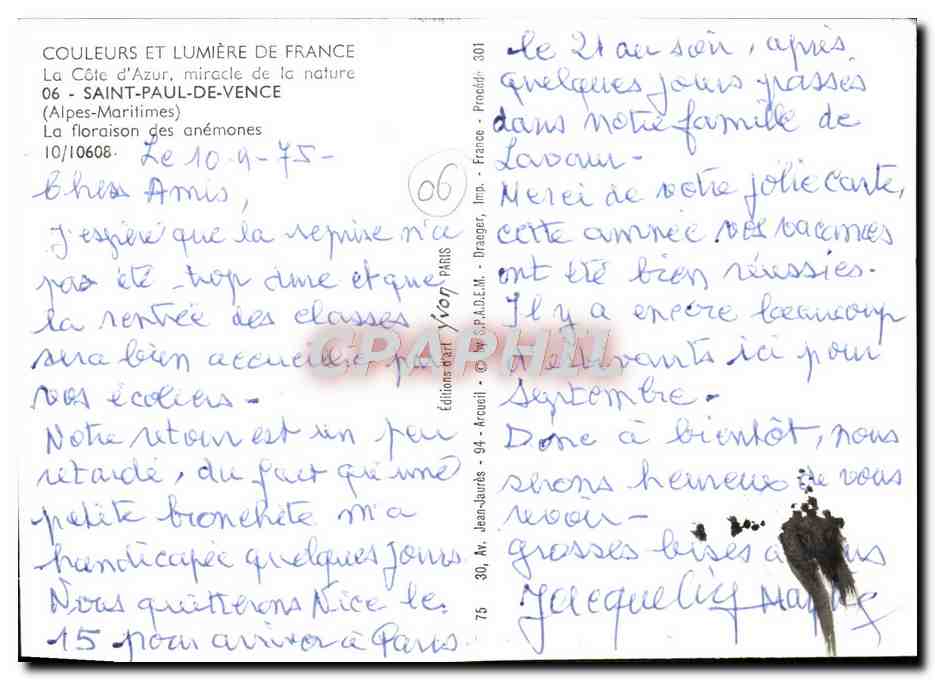 COULEURS ET LUMIÈRE DE FRANCE
La Côte d'Azur, miracle de la nature
06 - SAINT-PAUL-DE-VENCE
(Alpes-Maritimes)
La floraison des anémones
10/10608.
Le 10-9-75-
Chers Amis,
J'espère que la reprise n'a
pas été trop dure et que
la rentrée des classes
sera bien accueillie par
vos écoliers-
Notre retour est un peu
retardé, du fait qu'une
petite bronchite m'a
handicapée quelques jours
Nous quitterons Nice le
15 pour arriver à Paris
06
Editions d'art Yvon PARIS
75 30, Av. Jean-Jaurès - 94 - Arcueil - © by S.P.A.D.E.M. - Draeger, Imp. - France - Procédé 301
le 21 au soir, après
quelques jours passés
dans notre famille de
Lavaur-
Merci de votre jolie carte,
cette année vos vacances
ont été bien réussies.
Il y a encore beaucoup
d'estivants ici pour
septembre-
Donc à bientôt, nous
serons heureux de vous
revoir-
grosses bises à
CPAPHIL